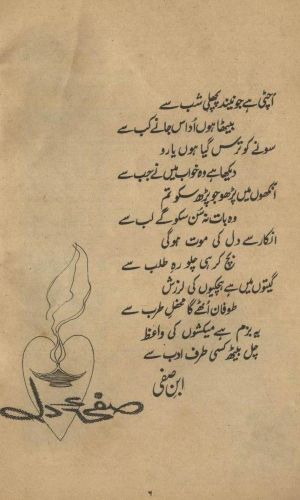 اُچٹی ہے جو نیند پچھلی شب سے
بیٹھا ہوں اُداس جانے کب سے
سونے کو ترس گیا ہوں یارو
دیکھا ہے وہ خواب میں نے جب سے
آنکھوں میں پڑھو جو پڑھ سکو تم
وہ بات نہ سُن سکو گے لب سے
انکار سے دل کی موت ہو گی
بچ کر ہی چلو رہِ طلب سے
گیتوں میں ہے ہچکیوں کی لرزش
طوفان اُٹھے گا محفلِ طرب سے
یہ بزم ہے میکشوں کی واعظ
چل بیٹھ کسی طرف ادب سے
ابن صفی
صفحۂ دل
۶